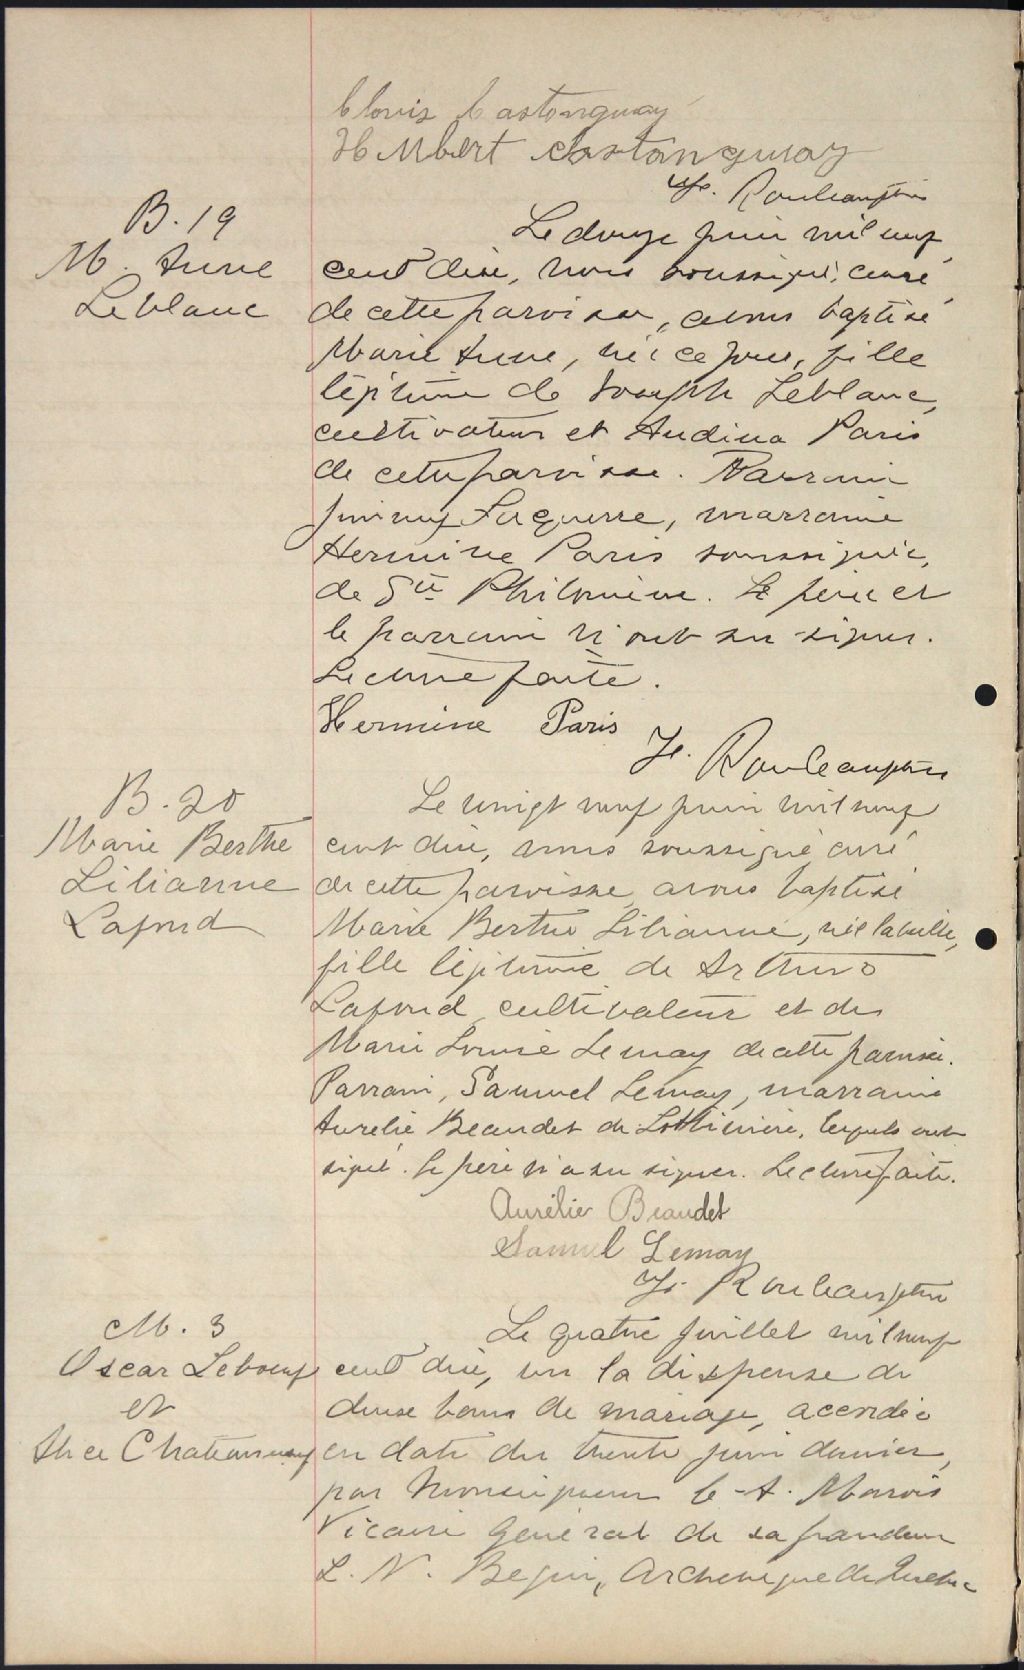 Clovis Castonguay
Humbert Castonguay
Jh. Rouleau ptre
B. 19
M. Anne
Leblanc
Le douze juin mil neuf
cent dix, nous soussigné, curé
de cette paroisse, avons baptisé
Marie Anne, née ce jour, fille
légitime de Joseph Leblanc,
cultivateur et Audina Paris
de cette paroisse. Parrain
Jimmy Laquerre, marraine
Hermine Paris soussignée,
de Ste Philomène. Le père et
le parrain n'ont su signer.
Lecture faite.
Hermine Paris
Jh. Rouleau ptre
B. 20
Marie Berthe
Lilianne
Lafond
Le vingt neuf juin mil neuf
cent dix, nous soussigné curé
de cette paroisse avons baptisé
Marie Berthe Lilianne, née la veille,
fille légitime de Arthur
Lafond cultivateur et de
Marie Louise Lemay de cette paroisse.
Parrain, Samuel Lemay, marraine
Aurélie Beaudet de Lotbinière, lesquels ont
signé. Le père n'a su signer. Lecture faite.
Aurélie Beaudet
Samuel Lemay
Jh. Rouleau ptre
M. 3
Oscar Leboeuf
et
Alice Chateauneuf
Le quatre juillet mil neuf
cent dix, vu la dispense de
deux bans de mariage, accordée
en date du trente juin dernier,
par Monseigneur C.-A. Marois
Vicaire Général de sa grandeur
L. N. Begin, Archevêque de Québec